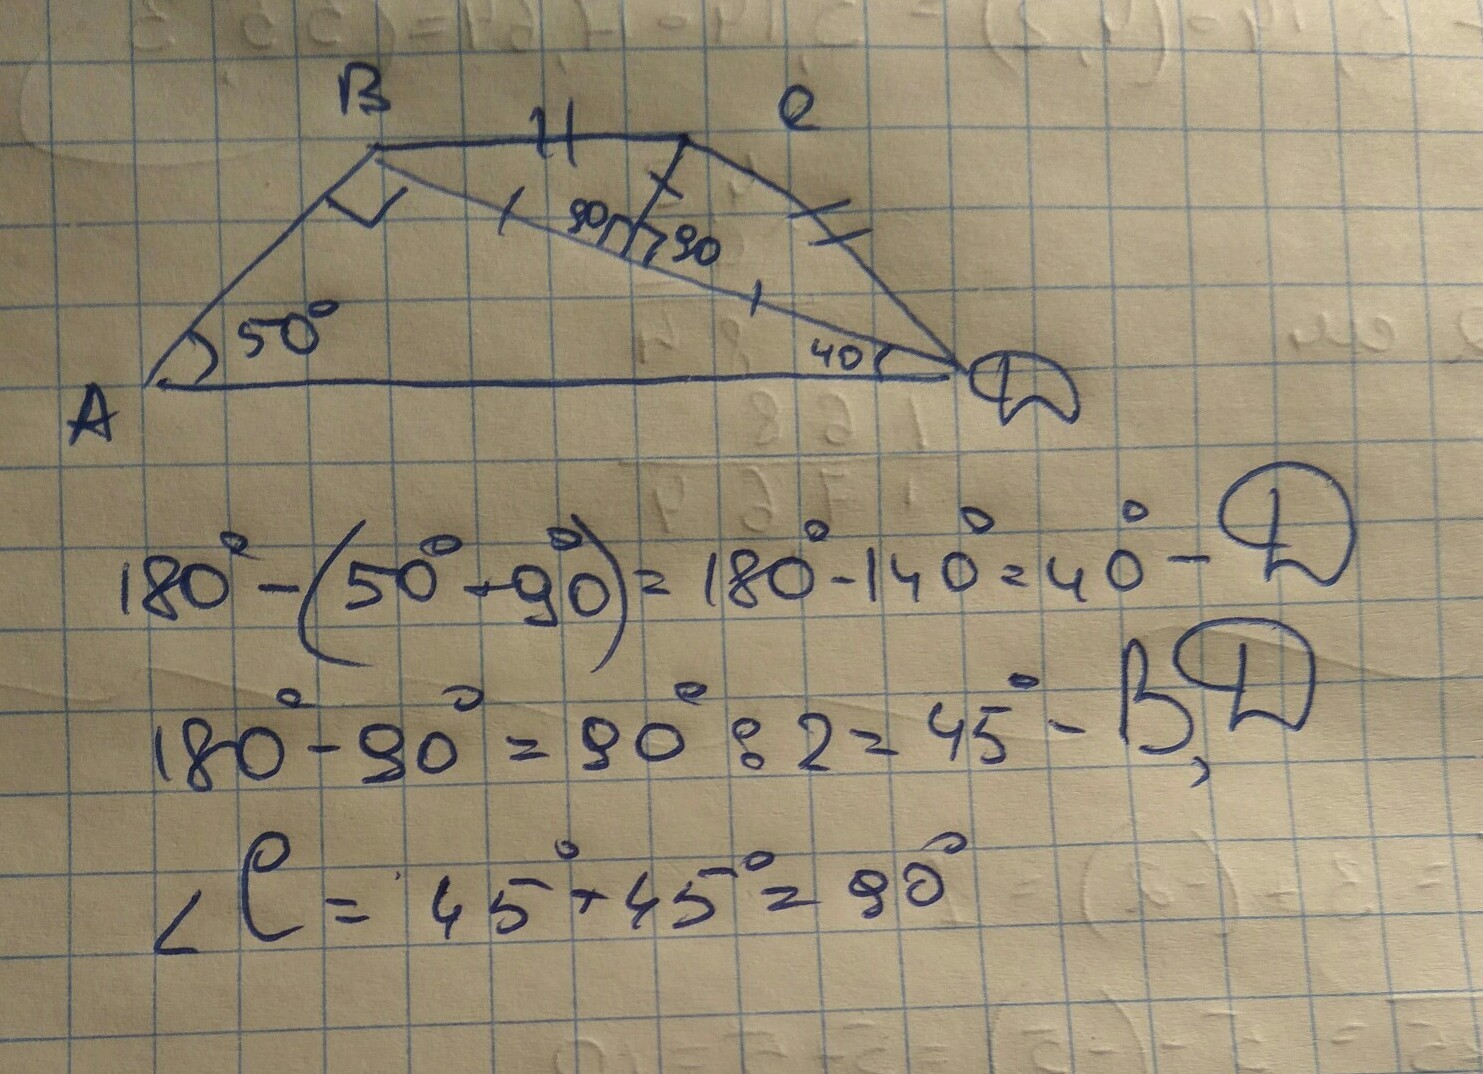 B
C
90
90
50°
40
A
D
180° - (50° + 90°) = 180° - 140° = 40° - D
180° - 90° = 90° : 2 = 45° - B, D
∠C = 45° + 45° = 90°